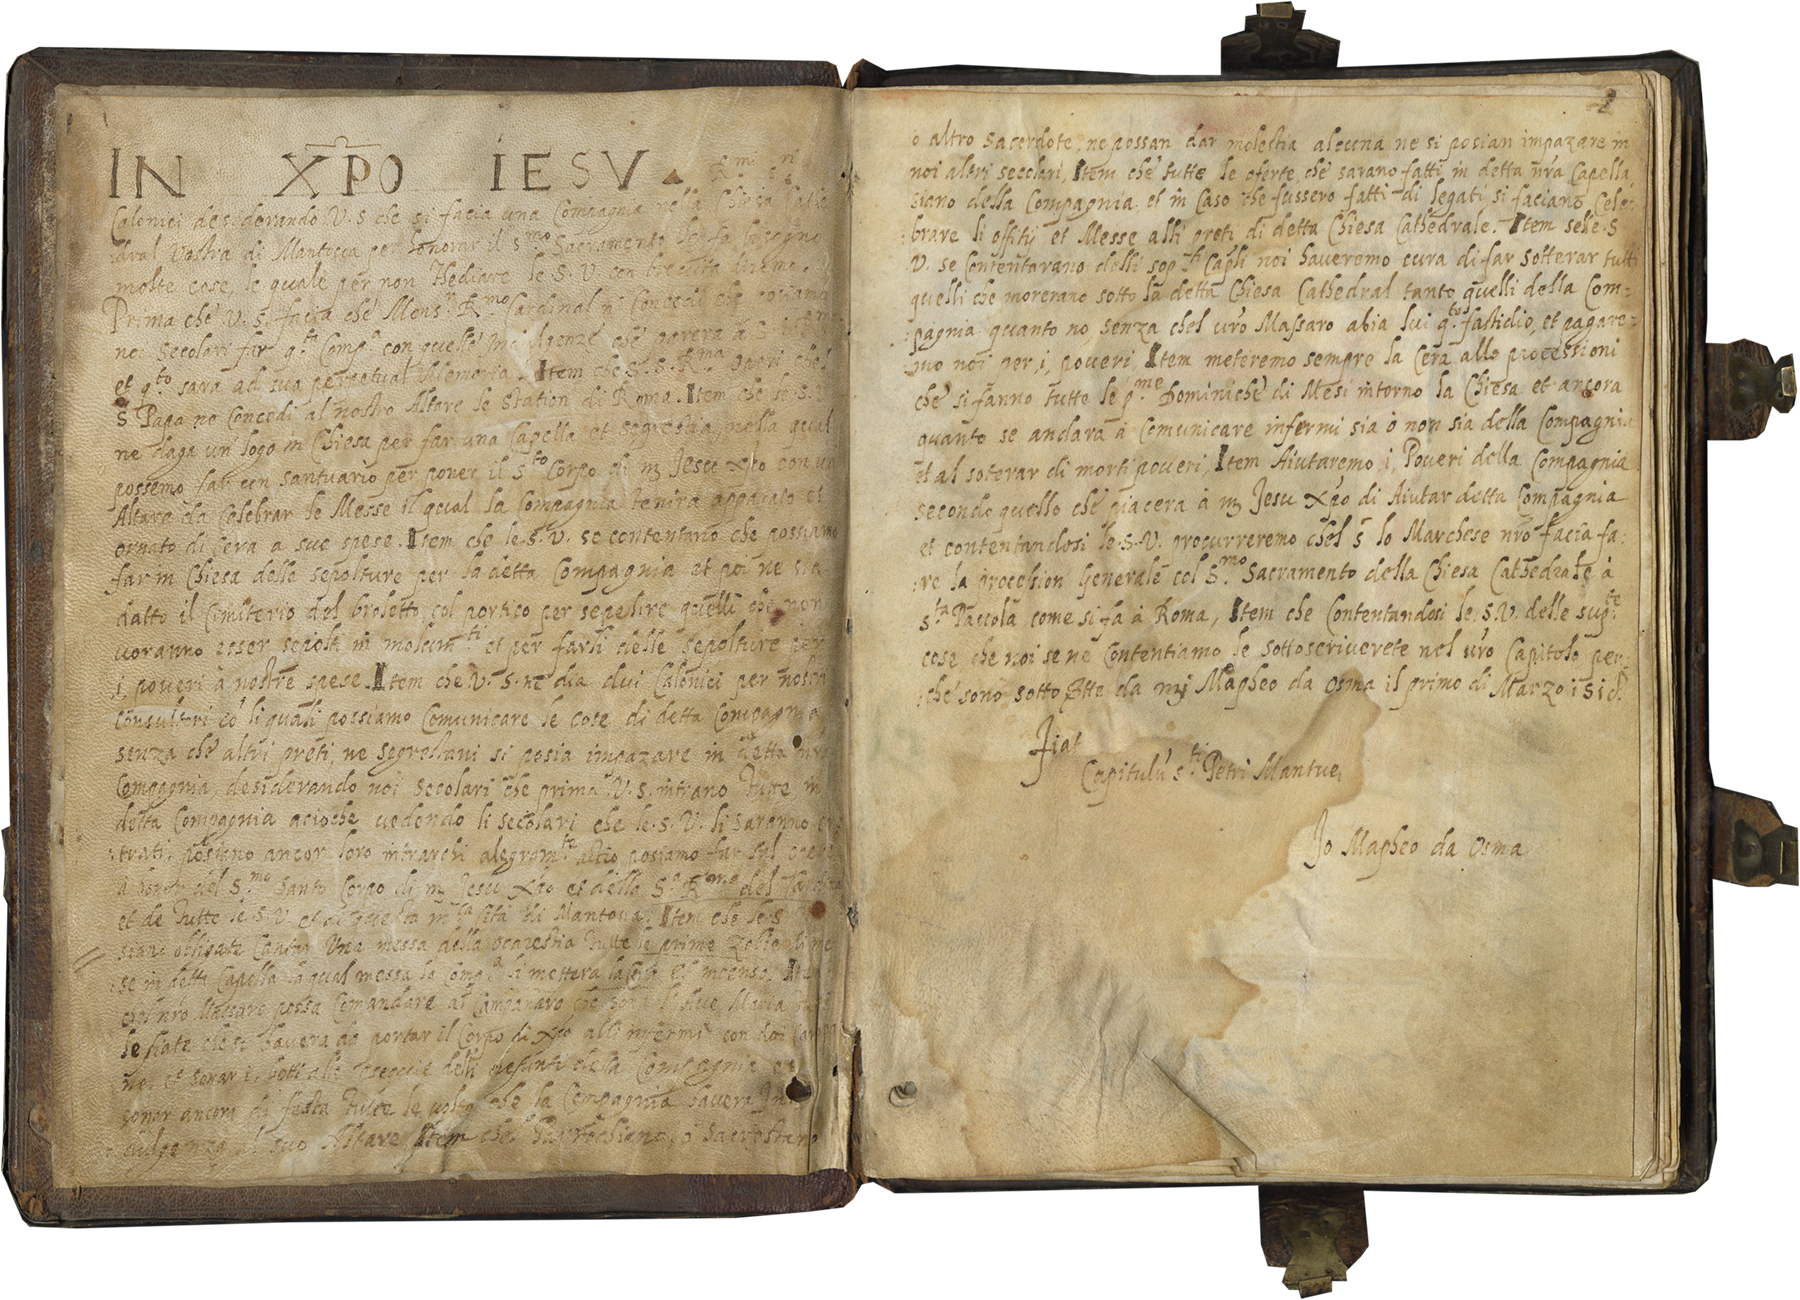 IN XP̄O IESV R.mi
Calonici desiderando V.S. che si facia una Compagnia nella Chiesa Cathe
dral Vostra di Mantova per honorar il S.mo Sacramento le fa bisogno
molte cose, le quale per non thediare le S.V. con brevita diremo.
Prima che V.S. facia che Mons.r R.mo Cardinal ni Concedi che possiamo
noi Secolari far q.ta Comp.a con quelle Indulgenze che parera a S.S. R.ma
et q.to sara ad sua perpetual Memoria. Item che S.S. R.ma opari chel
S Papa ne Concedi al nostro Altare le Station di Roma. Item che le S.V.
ne daga un logo in Chiesa per far una Capella et Segrestia, nella qual
possemo far un santuario per poner il S.to Corpo di m Jesu xp̄o con un
Altare da Celebrar le Messe il qual la Compagnia tenira apparato et
ornato di Cera a sue spese. Item che le S.V. se contentano che possiamo
far in Chiesa delle sepolture per la detta Compagnia et poi ne sia
datto il Cimiterio del broletto col portico per sepelire quelli che non
voranno esser sepolti in molum.ti et per farli delle sepolture per
i, poveri à nostre spese. Item che V.S. ne dia dui Calonici per nostri
consultori cō li quali possiamo Comunicare le cose di detta Compagnia
senza che altri preti, ne segrestani si posia impazare in detta nr̄a
Compagnia, desiderando noi Secolari che prima V.S. intrano tutte in
detta Compagnia acioche vedendo li secolari che le S.V. li saranno en
trati, possino ancor loro intrarchi alegram.te altio possiamo far
à honor del S.mo Santo Corpo di m Jesu xp̄o et della S.a R.ma del Cardinal
et de tutte le S.V. et di questa m.ca cità di Mantova. Item che le S.
siano obligate Cantar una messa della tutte le prime Zobie di me
se in detta Capella la qual messa la Comp.a li mettera la Cera et incenso. Item
chel nr̄o Massaro possa Comandare al Campanaro che soni l'Ave Maria
le fiate che si havera da portar il Corpo di xp̄o alli infermi con doi Campa
ne, et sonar i botti alle exequie delli defunti della Compagnia et
sonar ancora di festa tutte le volte che la Compagnia havera In
dulgenza al suo Altare Item che Parrochiano, o Sacrestano
2
o altro Sacerdote, ne possan dar molestia alcuna ne si posian impazare in
noi altri secolari, Item che tutte le oferte che sarano fatti in detta nr̄a Capella
siano della Compagnia et in Caso che fussero fatti di legati si faciano Cele-
brare li offitij et Messe alli preti di detta Chiesa Cathedrale. Item sele S.
V. se Contentarano delli sop.ti Capli noi haveremo cura di far sotterar tutti
quelli che morerano sotto la detta Chiesa Cathedral tanto quelli della Com=
pagnia quanto no, senza chel vr̄o Massaro abia lui q.to fastidio, et pagare=
mo noi per i, poveri, Item meteremo sempre la Cera alle processioni
che si fanno tutte le p.me Dominiche di Mesi intorno la Chiesa et ancora
quanto se andara à Comunicare infermi sia ò non sia della Compagnia
et al soterar di morti poveri, Item Aiutaremo i, Poveri della Compagnia
secondo quello che piacera à m Jesu xp̄o di Aiutar detta Compagnia
et contentandosi le S.V. procurreremo chel S lo Marchese nr̄o facia fa-
re la procession Generale col S.mo Sacramento della Chiesa Cathedrale à
S.ta Paccola come si fa à Roma, Item che Contentandosi le S.V. delle sup.te
cose che noi se ne Contentiamo le sottoscriverete nel vr̄o Capitolo per-
che sono sotto da mj Mapheo da Osma il primo di Marzo
Fiat
Capitulū S.ti Petri Mantue
Jo Mapheo da Osma